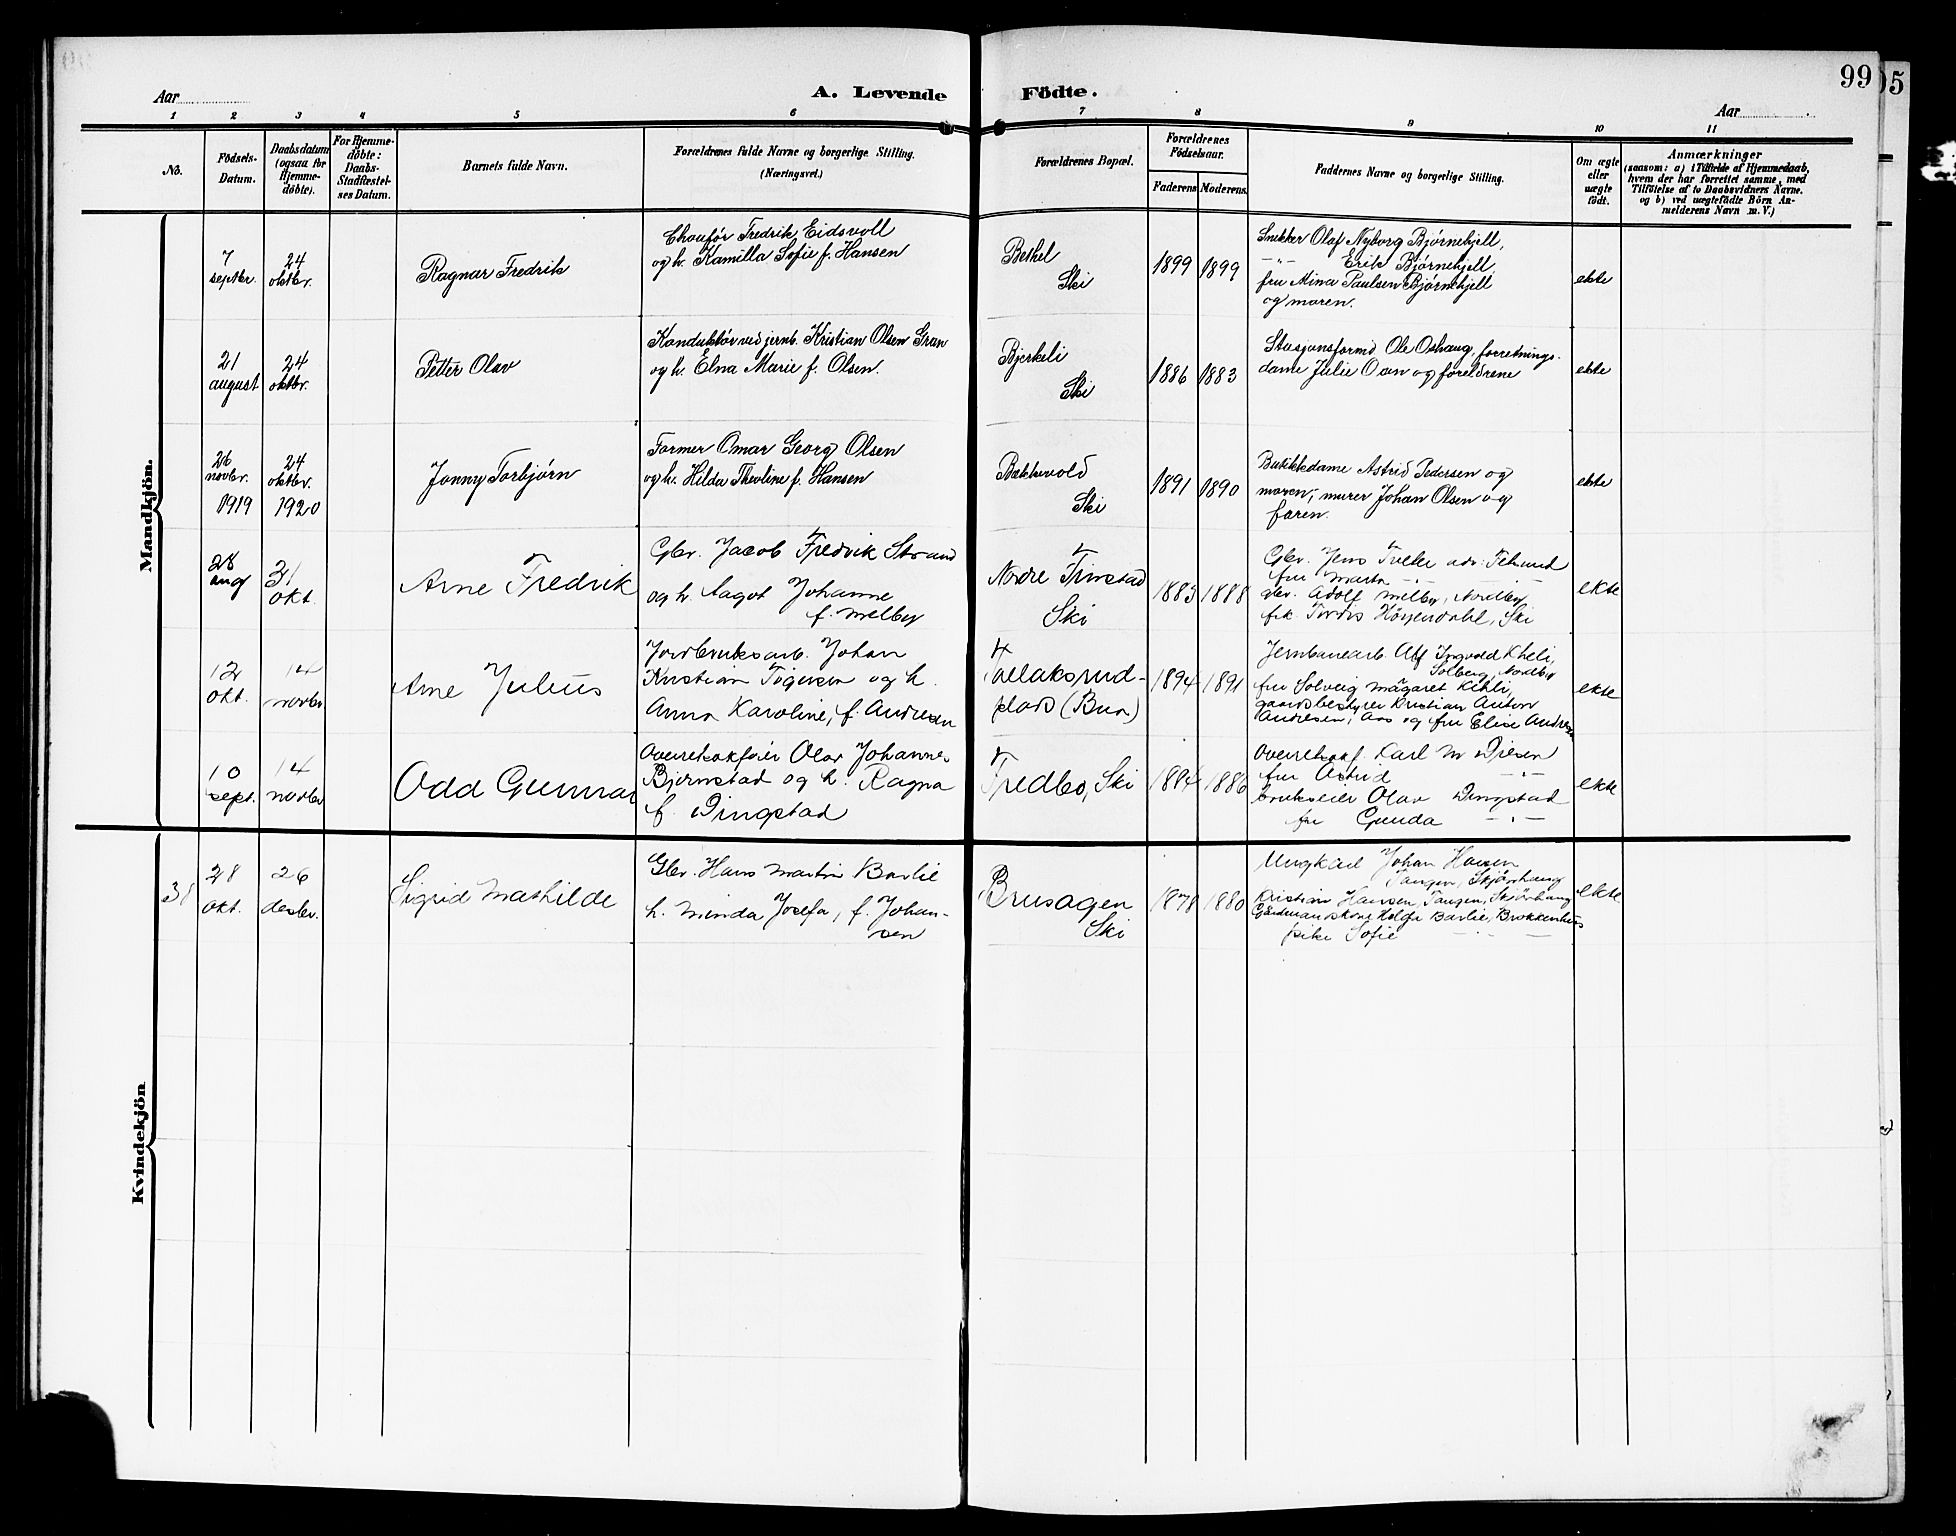 99
05
Aar
A. Levende
Födte.
Aar
1 2 3 4 5 6 7 8 9 10 11
No.
Födsels-
Datum.
Daabsdatum
(ogsaa for
Hjemme-
döbte).
For Hjemme-
döbte:
Daabs-
Stadfæstel-
ses Datum.
Barnets fulde Navn.
Forældrenes fulde Navne og borgerlige Stilling.
(Næringsvei.)
Forældrenes Bopæl.
Forældrenes
Födselsaar.
Faderens
Moderens.
Faddernes Navne og borgerlige Stilling.
Om ægte
eller
uægte
födt.
Anmærkninger
(saasom: a) i Tilfælde af Hjemmedaab,
hvem der har forrettet samme, med
Tilföielse af to Daabsvidners Navne.
og b) ved uægtefödte Börn An-
melderens Navn m. V.)
Mandkjön.
7
septbr.
24
oktbr.
Ragnar Fredrik
Chauför Fredrik Eidsvoll
og h. Kamilla Sofie f. Hansen
Bethel
Ski
1899
1899
Snekker Olaf Nyborg Bjørnehjell,
-"- Erik Bjørnehjell,
fru Mina Paulsen Bjørnehjell
og moren.
ekte
21
august
24
oktbr.
Petter Olav
Konduktör ved jernb. Kristian Olsen Gran
og h. Elna Marie f. Olsen.
Bjerkeli
Ski
1886
1883
Stasjonsformd Ole Oshaug, forretnings-
dame Julie Oan og foreldrene
ekte
26
novbr.
1919
24
oktbr.
1920
Jonny Torbjørn
Former Omar Georg Olsen
og h. Hilda Theoline f. Hansen
Bakkevold
Ski
1891
1890
Butikkdame Astrid Pedersen og
moren; murer Johan Olsen og
faren.
ekte
28
aug
31
okt.
Arne Fredrik
Gbr. Jacob Fredrik Strand
og h. Aagot Johanne
f. Melby
Nordre Finstad
Ski
1883
1888
Gbr. Jens Tveter
fru Marta -"-
Gbr. Adolf Melby, Nordby
frk. Tordis Ski
ekte
12
okt.
14
novbr
Arne Julius
Jordbruksarb. Johan
Kristian Tigersen og h.
Anna Karoline, f. Andresen
plads (Bru)
1894
1891
Jernbanearb. Alf Ingvald Kheli,
Solberg, Nordby
fru Solveig Mágaret Kihli,
gaardsbestyrer Kristian Anton
Andresen, Aas og fru Elise Andresen
ekte
10
sept.
14
novbr
Odd Gunnar
Overretssakfører Olav Johannes
Bjørnstad og h. Ragna
f. Dingstad
Fredbo, Ski
1884
1886
Overretssakf. Karl M
fru Astrid -"-
brukseier Olav Dingstad
fru Gunda -"-
ekte
Kvindekjön
38
28
okt.
26
desbr.
Sigrid Mathilde
Gbr. Hans Martin Barlie
h. Minda Josefa, f. Johan-
sen
Brusagen
Ski
1878
1880
Ungkarl Johan Hansen
Tangen, Skjärhaug
Kristian Hansen, Tangen, Skjärhaug
Gårdmandskone Helga Barlie, Brokkenhus
pike Sofie -"-
ekte